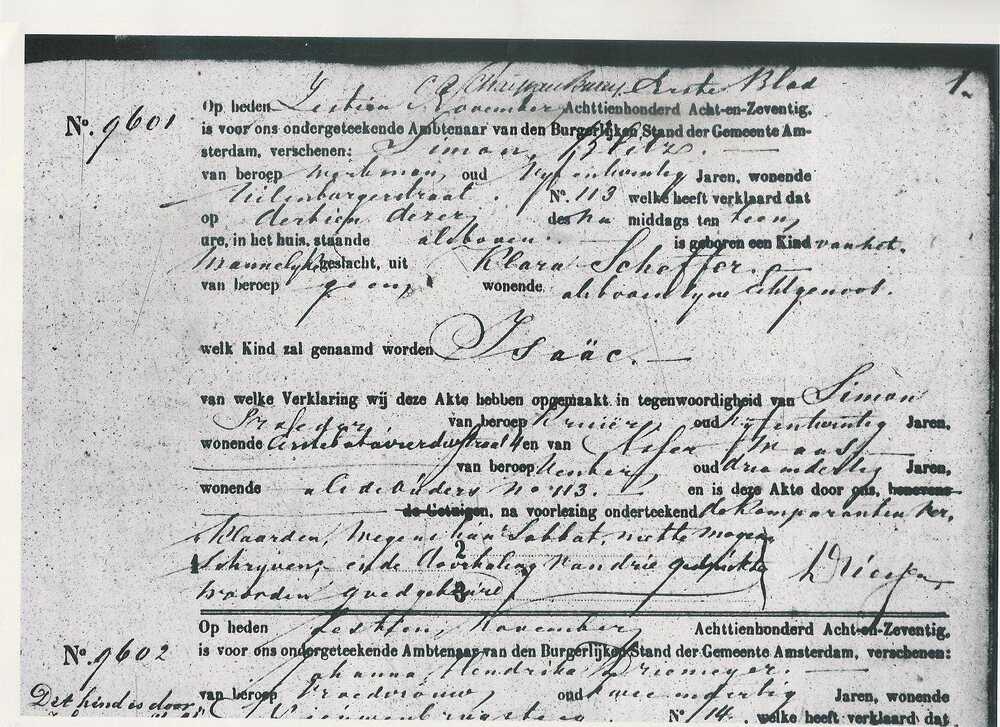 Eerste Blad 1.
No. 9601
Op heden Zestien November Achttienhonderd Acht-en-Zeventig,
is voor ons ondergeteekende Ambtenaar van den Burgerlijken Stand der Gemeente Am-
sterdam, verschenen: Simon Blitz.
van beroep werkman, oud vyfentwintig Jaren, wonende
Uilenburgerstraat. No. 113 welke heeft verklaard dat
op dertien dezer, des na middags ten een
ure, in het huis, staande alsboven. is geboren een Kind van het
mannelijk geslacht, uit Klara Scheffer.
van beroep geen, wonende alsboven zyne Echtgenoot.
welk Kind zal genaamd worden Isaäc.
van welke Verklaring wij deze Akte hebben opgemaakt in tegenwoordigheid van Simon
van beroep Kruier oud vyfentwintig Jaren,
wonende en van Maas
van beroep oud drieendertig Jaren,
wonende als de Ouders No 113. en is deze Akte door ons, benevens
de Getuigen, na voorlezing onderteekend, de Komparanten ver-
klaarden, wegens hun Sabbat, niet te mogen
1 2 schrijven, en de doorhaling van drie gedrukte
woorden goedgekeurd 3
No. 9602
Op heden Zestien November Achttienhonderd Acht-en-Zeventig,
is voor ons ondergeteekende Ambtenaar van den Burgerlijken Stand der Gemeente Amsterdam, verschenen:
Johanna Hendrika Driemeyer
Dit kind is door
van beroep Vroedvrouw, oud twee en dertig Jaren, wonende
No 14. welke heeft verklaard dat